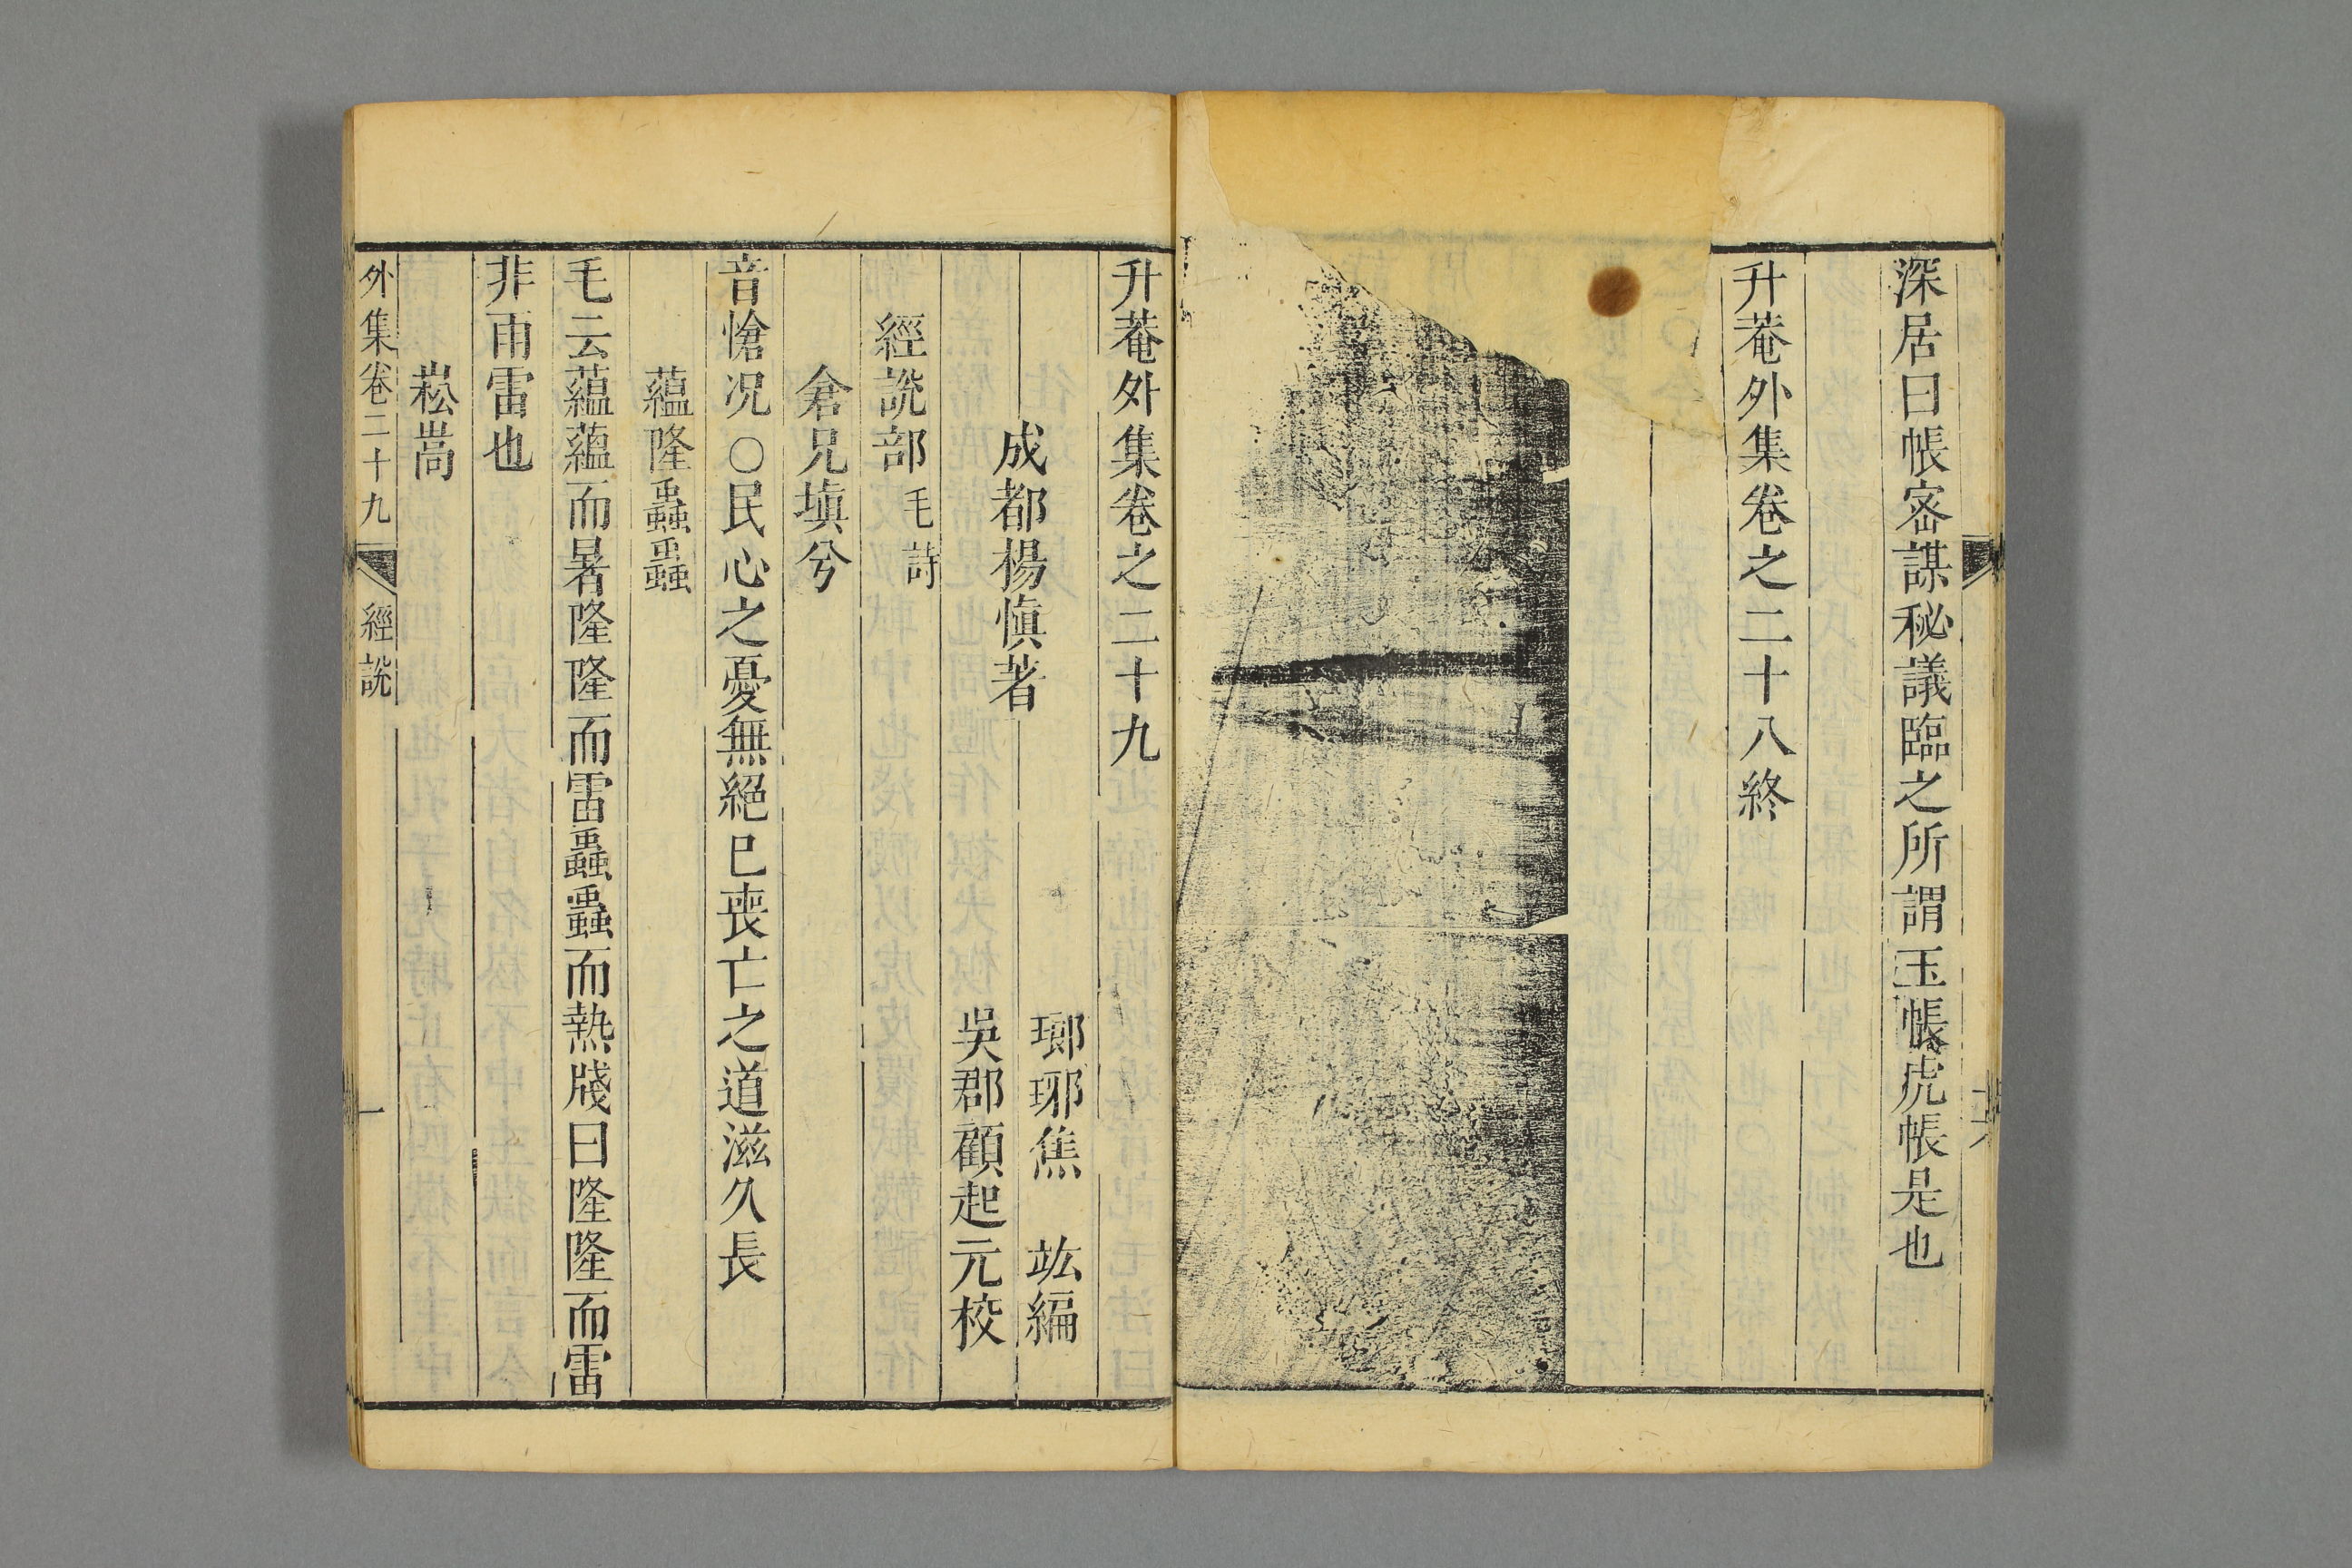 深居曰帳密謀秘議臨之所謂玉帳虎帳是也
升菴外集卷之二十八終
升菴外集卷之二十九
成都楊愼著
瑯琊焦竑編
吳郡顧起元校
經説部 毛詩
倉兄塡兮
音愴况○民心之憂無絕已喪亡之道滋久長
蘊隆蟲蟲
毛云蘊蘊而暑隆隆而雷蟲蟲而熱牋曰隆隆而雷
非雨雷也
崧嵩
外集卷二十九 經説 一